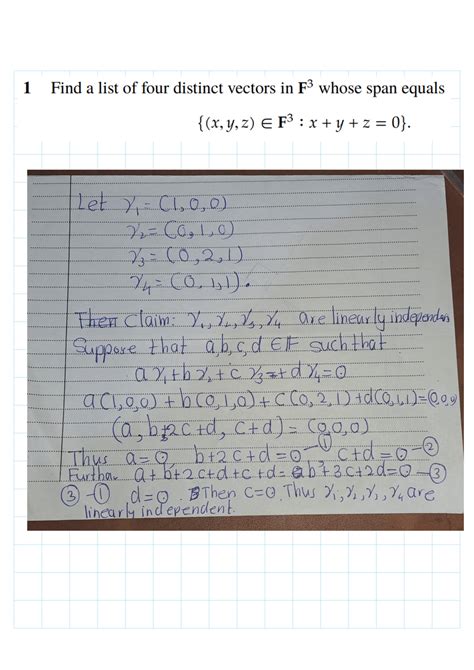 1 Find a list of four distinct vectors in F³ whose span equals
{(x, y, z) ∈ F³ : x + y + z = 0}.
Let γ₁ = (1,0,0)
γ₂ = (0,1,0)
γ₃ = (0,2,1)
γ₄ = (0,1,1).
Then Claim: γ₁, γ₂, γ₃, γ₄ are linearly independen
Suppose that a,b,c,d ∈ F such that
a γ₁ + b γ₂ + c γ₃ + d γ₄ = 0
a(1,0,0) + b(0,1,0) + c(0,2,1) + d(0,1,1) = (0,0,0)
(a, b+2c+d, c+d) = (0,0,0)
Thus a = 0, b+2c+d = 0 –①, c+d = 0 –②
Furtha. a+b+2c+d+c+d = b+3c+2d = 0 –③
③ – ① d = 0. Then c = 0. Thus γ₁, γ₂, γ₃, γ₄ are
linearly independent.